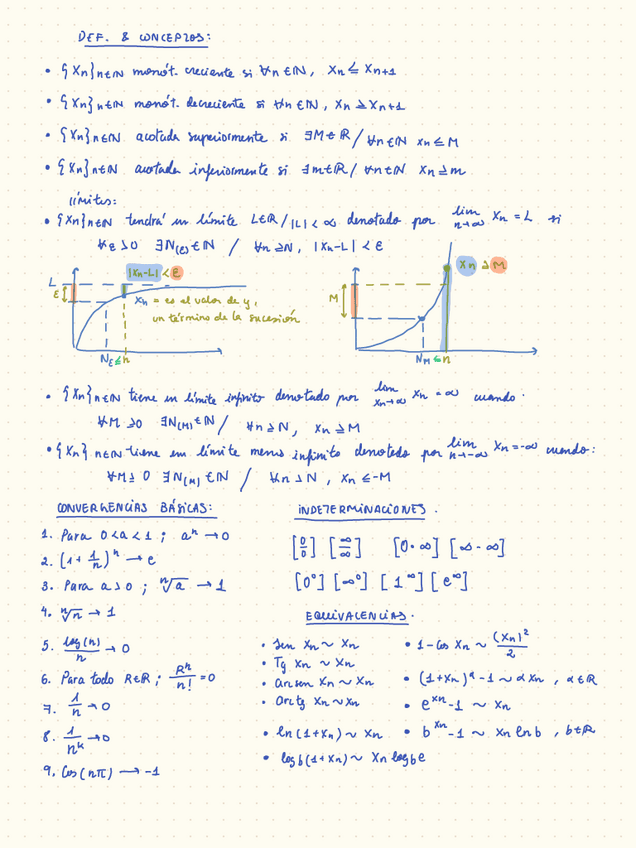 DEF. & CONCEPTOS:
• {Xn}n∈ℕ monót. creciente si ∀n∈ℕ, Xn ≤ Xn+1
• {Xn}n∈ℕ monót. decreciente si ∀n∈ℕ, Xn ≥ Xn+1
• {Xn}n∈ℕ acotada superiormente si ∃M∈ℝ / ∀n∈ℕ Xn ≤ M
• {Xn}n∈ℕ acotada inferiormente si ∃m∈ℝ / ∀n∈ℕ Xn ≥ m
límites:
• {Xn}n∈ℕ tendrá un límite L∈ℝ / |L| < ∞ denotado por lim n→∞ Xn = L si
∀ε>0 ∃N(ε)∈ℕ / ∀n≥N, |Xn-L| < ε
|Xn-L| < ε
L
ε
Xn = es el valor de y,
un término de la sucesión
Nε ≤ n
Xn ≥ M
M
NM ≤ n
• {Xn}n∈ℕ tiene un límite infinito denotado por lim Xn→∞ Xn = ∞ cuando.
∀M ≥0 ∃N(M)∈ℕ / ∀n≥N, Xn ≥ M
• {Xn}n∈ℕ tiene un límite menos infinito denotado por lim n→-∞ Xn = -∞ cuando:
∀M≥ 0 ∃N(M)∈ℕ / ∀n≥N, Xn ≤ -M
CONVERGENCIAS BÁSICAS:
1. Para 0<a<1 ; aⁿ → 0
2. (1 + 1/n)ⁿ → e
3. Para a>0 ; ⁿ√a → 1
4. ⁿ√n → 1
5. log(n)/n → 0
6. Para todo R∈ℝ ; Rⁿ/n! = 0
7. 1/n → 0
8. 1/n^k → 0
9. Cos(nπ) → -1
INDETERMINACIONES.
[0/0] [∞/∞] [0·∞] [∞-∞]
[0⁰] [∞⁰] [1^∞] [e^∞]
EQUIVALENCIAS.
• sen Xn ~ Xn • 1-Cos Xn ~ (Xn)²/2
• Tg Xn ~ Xn
• arcsen Xn ~ Xn • (1+Xn)^α - 1 ~ αXn , α∈ℝ
• arctg Xn ~ Xn • e^Xn - 1 ~ Xn
• ln(1+Xn) ~ Xn • b^Xn - 1 ~ Xn ln b , b∈ℝ
• log b (1+Xn) ~ Xn log b e